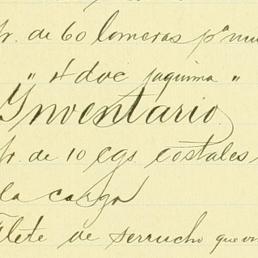 pr. de 60 lomeras pª mu
" 4 doc jaquima "
Inventario
pr. de 10 cgs costales
la carga
Flete de serrucho que vi